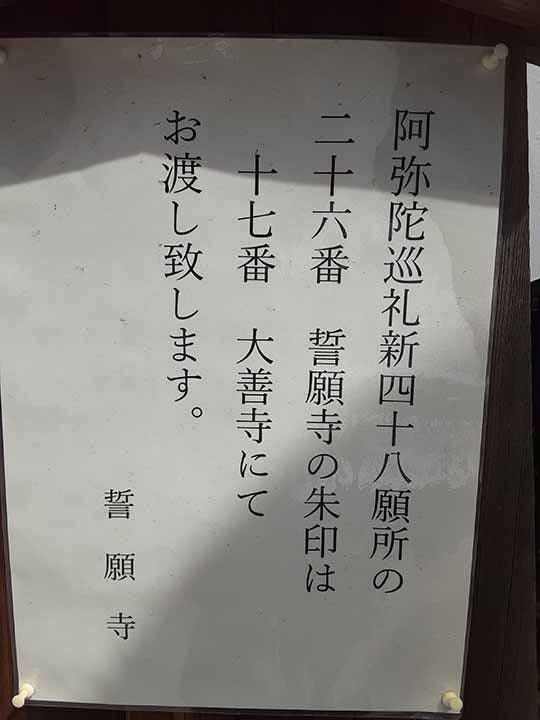 阿弥陀巡礼新四十八願所の
二十六番　誓願寺の朱印は
十七番　大善寺にて
お渡し致します。
誓願寺